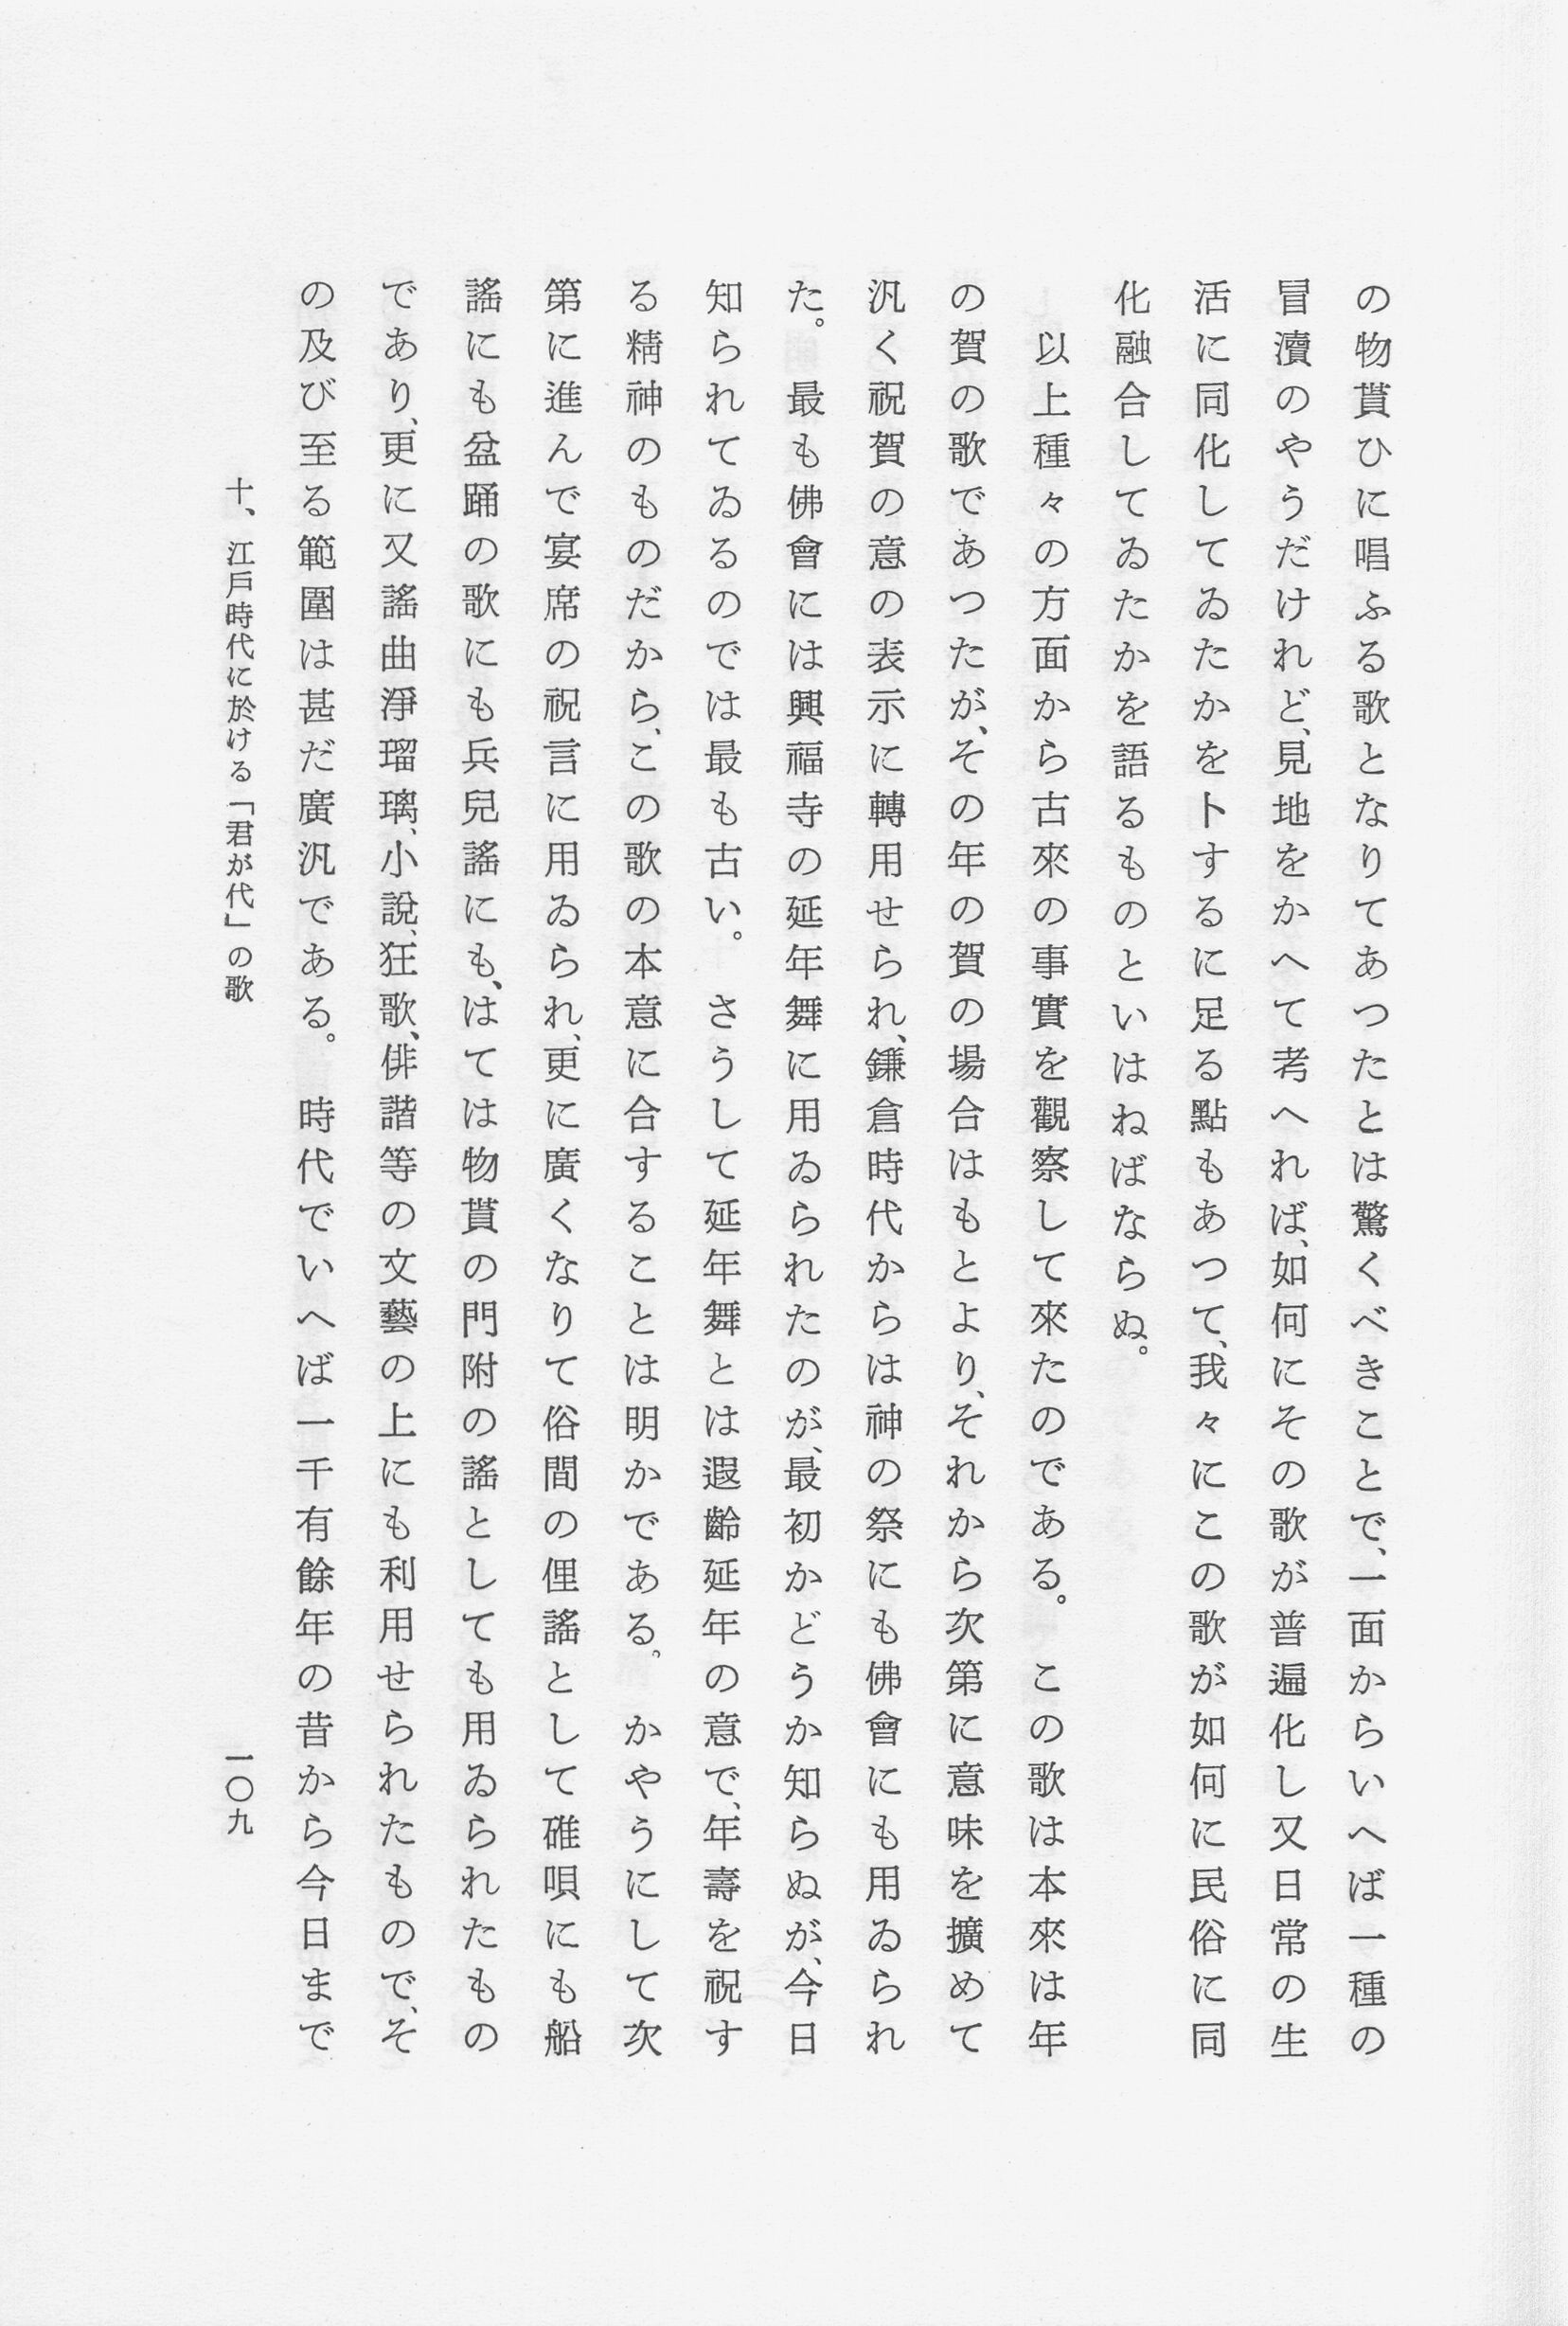 の物貰ひに唱ふる歌となりてあつたとは驚くべきことで、一面からいへば一種の
冒瀆のやうだけれど、見地をかへて考へれば、如何にその歌が普遍化し又日常の生
活に同化してゐたかを卜するに足る點もあつて、我々にこの歌が如何に民俗に同
化融合してゐたかを語るものといはねばならぬ。
以上種々の方面から古來の事實を觀察して來たのである。この歌は本來は年
の賀の歌であつたが、その年の賀の場合はもとより、それから次第に意味を擴めて
汎く祝賀の意の表示に轉用せられ、鎌倉時代からは神の祭にも佛會にも用ゐられ
た。最も佛會には興福寺の延年舞に用ゐられたのが、最初かどうか知らぬが、今日
知られてゐるのでは最も古い。さうして延年舞とは遐齡延年の意で、年壽を祝す
る精神のものだから、この歌の本意に合することは明かである。かやうにして次
第に進んで宴席の祝言に用ゐられ、更に廣くなりて俗間の俚謠として碓唄にも船
謠にも盆踊の歌にも兵兒謠にも、はては物貰の門附の謠としても用ゐられたもの
であり、更に又謠曲淨瑠璃、小說、狂歌、俳諧等の文藝の上にも利用せられたもので、そ
の及び至る範圍は甚だ廣汎である。時代でいへば一千有餘年の昔から今日まで
十、江戶時代に於ける「君が代」の歌
一〇九